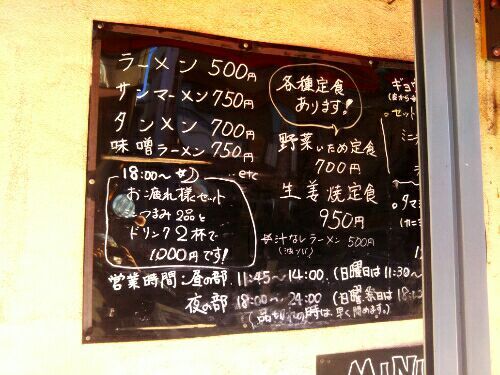 ラーメン 500円
サンマーメン 750円
タンメン 700円
味噌ラーメン 750円
etc
18:00〜
お疲れ様セット
おつまみ2品と
ドリンク2杯で
1000円です!
各種定食
あります!
野菜いため定食
700円
生姜焼定食
950円
汁なしラーメン 500円
営業時間:昼の部 11:45〜14:00 (日曜日は11:30〜
夜の部 18:00〜24:00 (日曜祭日は18:
(品切れの時は、早く閉めます。)
ギョウ
セット
ミニ
MINI